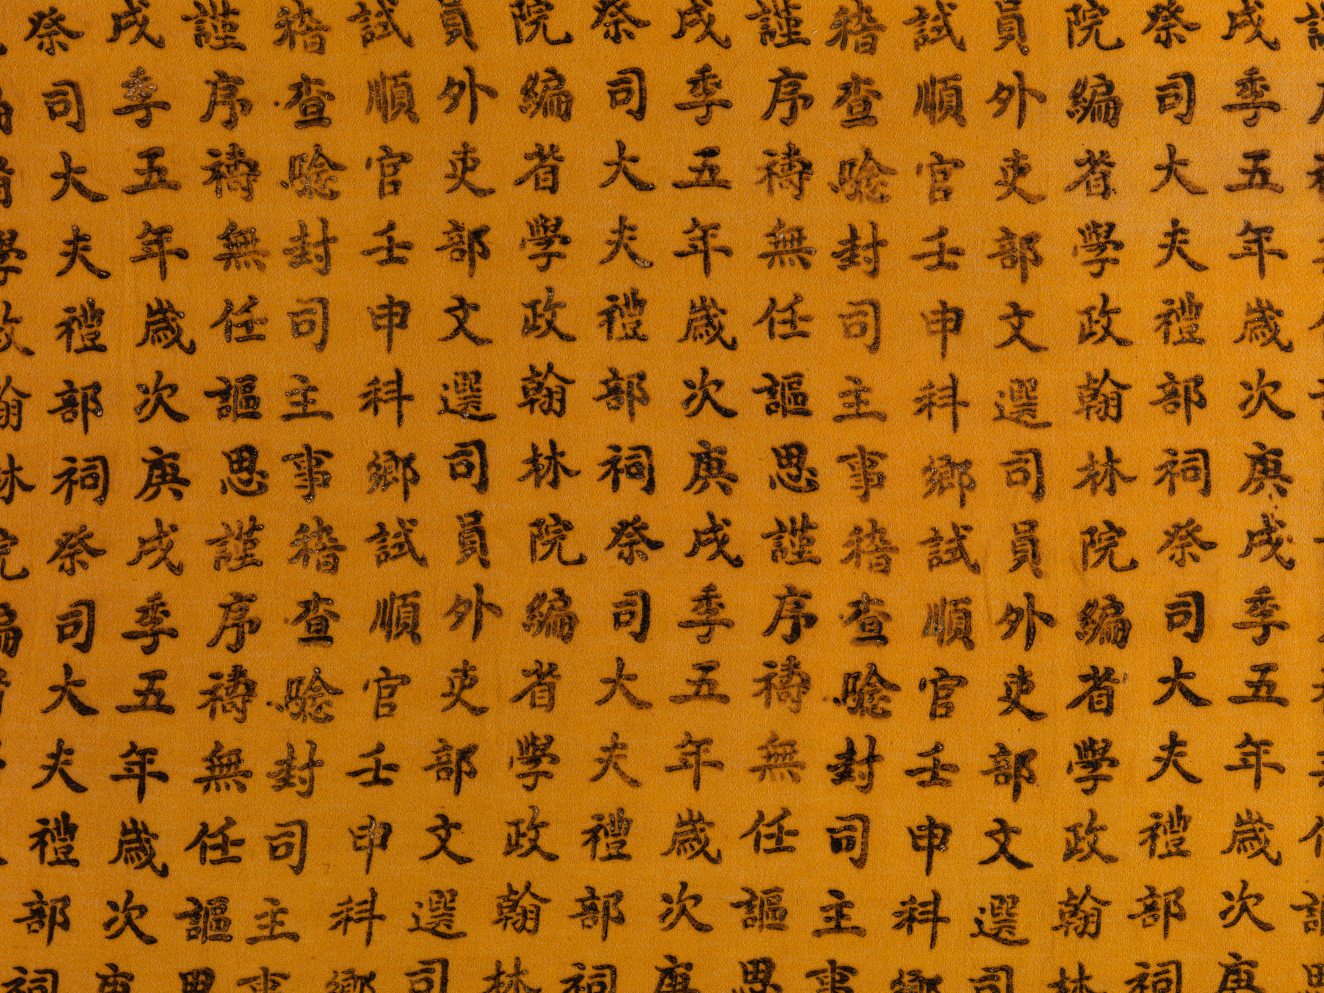 戌季五年歲次庚戌季五年歲次庚
祭司大夫禮部祠祭司大夫禮部祠
院編省學政翰林院編省學政翰林
員外吏部文選司員外吏部文選司
試順官壬申科鄉試順官壬申科鄉
稽查唸封司主事稽查唸封司主事
謹序禱無任謳思謹序禱無任謳思
戌季五年歲次庚戌季五年歲次庚
祭司大夫禮部祠祭司大夫禮部祠
院編省學政翰林院編省學政翰林
員外吏部文選司員外吏部文選司
試順官壬申科鄉試順官壬申科鄉
稽查唸封司主事稽查唸封司主事
謹序禱無任謳思謹序禱無任謳思
戌季五年歲次庚戌季五年歲次庚
祭司大夫禮部祠祭司大夫禮部祠
學政翰林院編